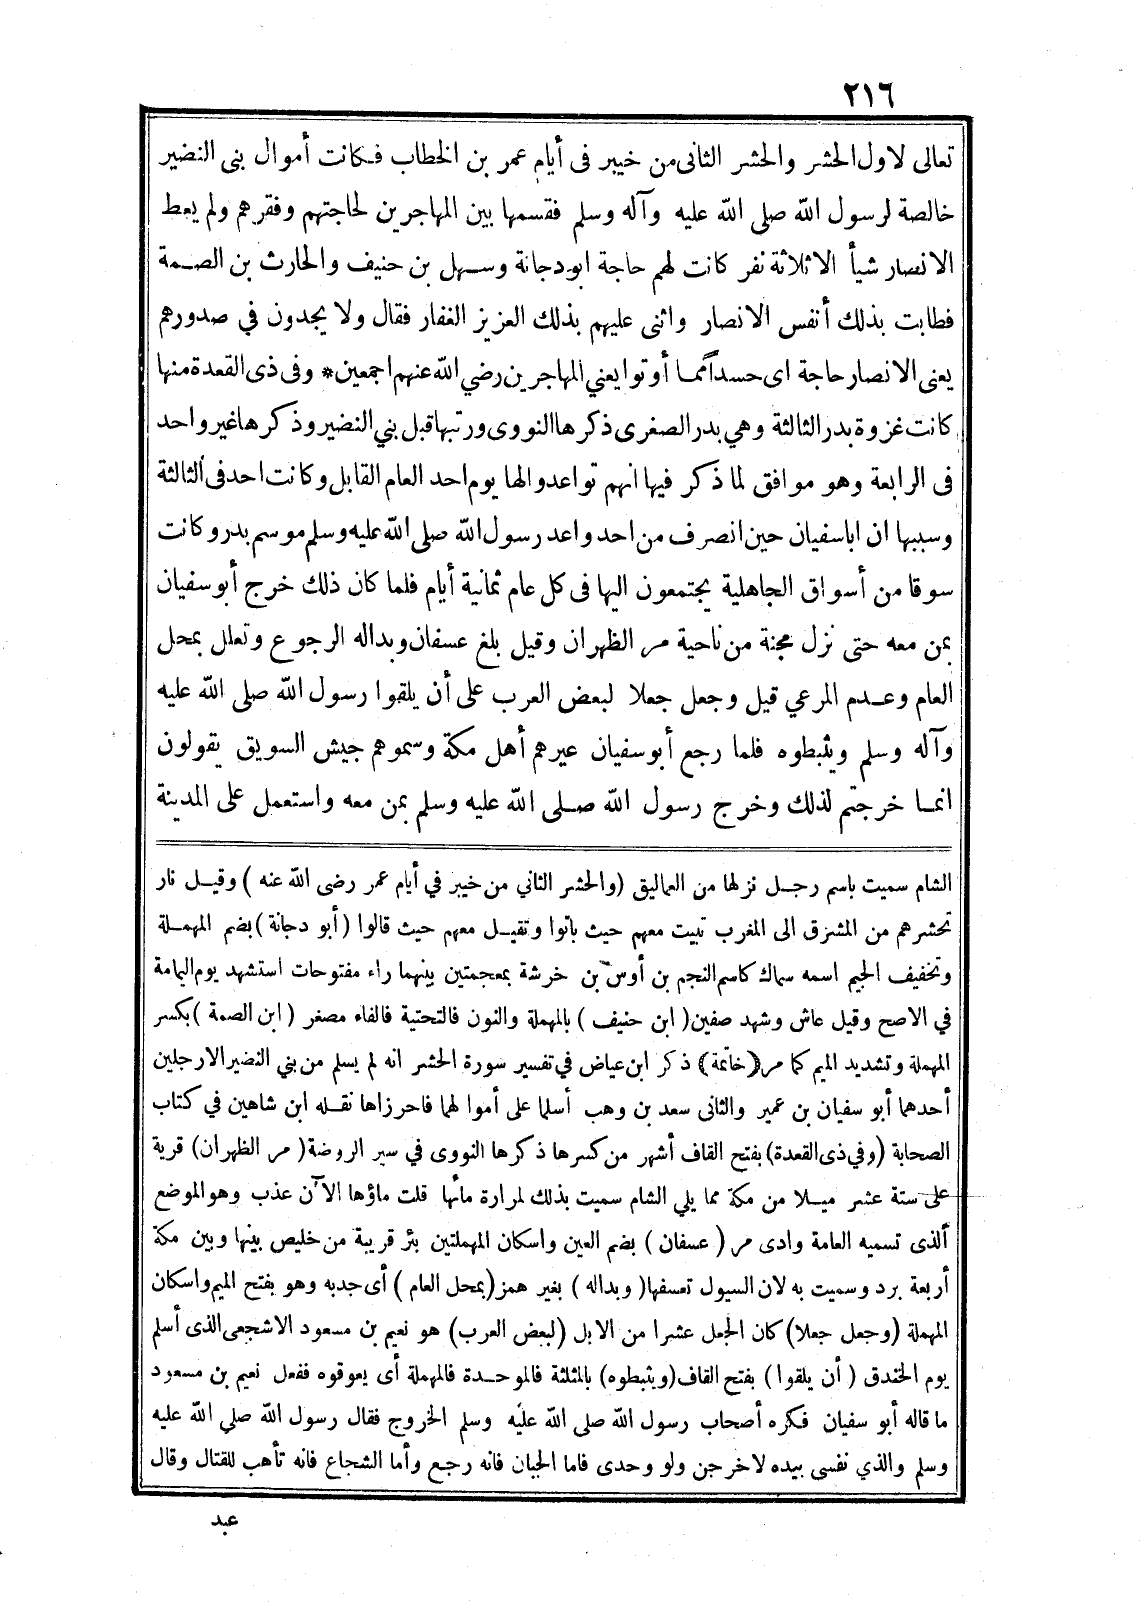 ٢١٦
تعالى لاول الحشر والحشر الثانى من خيبر فى أيام عمر بن الخطاب فكانت أموال بنى النضير
خالصة لرسول الله صلى الله عليه وآله وسلم فقسمها بين المهاجرين لحاجتهم وفقرهم ولم يعط
الانصار شيأ الا ثلاثة نفر كانت لهم حاجة ابودجانة وسهل بن حنيف والحارث بن الصمة
فطابت بذلك أنفس الانصار واثنى عليهم بذلك العزيز الغفار فقال ولا يجدون في صدورهم
يعنى الانصار حاجة اى حسداً مما أوتوا يعني المهاجرين رضي الله عنهم اجمعين* وفى ذى القعدة منها
كانت غزوة بدر الثالثة وهي بدر الصغرى ذكرها النووى ورتبها قبل بني النضير وذكرها غير واحد
فى الرابعة وهو موافق لما ذكر فيها انهم تواعدوا لها يوم احد العام القابل وكانت احد فى الثالثة
وسببها ان اباسفيان حين انصرف من احد واعد رسول الله صلى الله عليه وسلم موسم بدر وكانت
سوقا من أسواق الجاهلية يجتمعون اليها فى كل عام ثمانية أيام فلما كان ذلك خرج أبو سفيان
بمن معه حتى نزل مجنة من ناحية مر الظهران وقيل بلغ عسفان وبداله الرجوع وتعلل بمحل
العام وعدم المرعي قيل وجعل جعلا لبعض العرب على أن يلقوا رسول الله صلى الله عليه
وآله وسلم ويثبطوه فلما رجع أبو سفيان عيرهم أهل مكة وسموهم جيش السويق يقولون
انما خرجتم لذلك وخرج رسول الله صلى الله عليه وسلم بمن معه واستعمل على المدينة
الشام سميت باسم رجل نزلها من العماليق (والحشر الثاني من خيبر في أيام عمر رضى الله عنه) وقيل نار
تحشرهم من المشرق الى المغرب تبيت معهم حيث باتوا وتقيل معهم حيث قالوا (أبو دجانة) بضم المهملة
وتخفيف الجيم اسمه سماك كاسم النجم بن أوس بن خرشة بمعجمتين بينهما راء مفتوحات استشهد يوم اليمامة
في الاصح وقيل عاش وشهد صفين (ابن حنيف) بالمهملة والنون فالتحتية فالفاء مصغر (ابن الصمة) بكسر
المهملة وتشديد الميم كما مر (خاتمة) ذكر ابن عياض في تفسير سورة الحشر انه لم يسلم من بني النضير الا رجلين
أحدهما أبو سفيان بن عمير والثانى سعد بن وهب أسلما على أموا لهما فاحرزاها نقله ابن شاهين في كتاب
الصحابة (وفي ذى القعدة) بفتح القاف أشهر من كسرها ذكرها النووى في سير الروضة (مر الظهران) قرية
على ستة عشر ميلا من مكة مما يلي الشام سميت بذلك لمرارة مائها قلت ماؤها الآن عذب وهو الموضع
الذى تسميه العامة وادى مر (عسفان) بضم العين واسكان المهملتين بئر قريبة من خليص بينها وبين مكة
أربعة برد وسميت به لان السيول تعسفها (وبداله) بغير همز (بمحل العام) أى جدبه وهو بفتح الميم واسكان
المهملة (وجعل جعلا) كان الجعل عشرا من الابل (لبعض العرب) هو نعيم بن مسعود الاشجعى الذى أسلم
يوم الخندق (أن يلقوا) بفتح القاف (ويثبطوه) بالمثلثة فالموحدة فالمهملة أى يعوقوه ففعل نعيم بن مسعود
ما قاله أبو سفيان فكره أصحاب رسول الله صلى الله عليه وسلم الخروج فقال رسول الله صلي الله عليه
وسلم والذي نفسى بيده لاخرجن ولو وحدى فاما الجبان فانه رجع وأما الشجاع فانه تأهب للقتال وقال
عبد